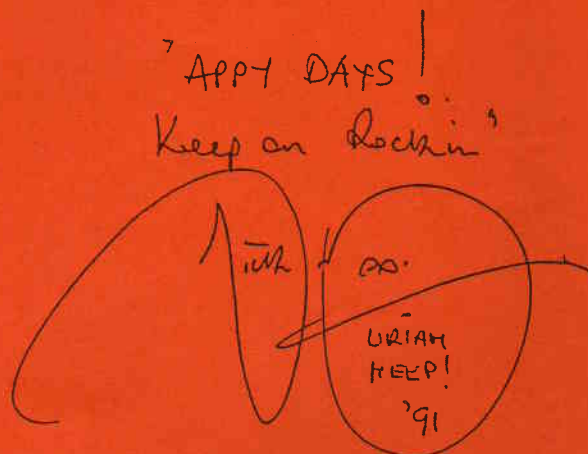 'APPY DAYS!
Keep on Rockin'
URIAH
HEEP!
'91